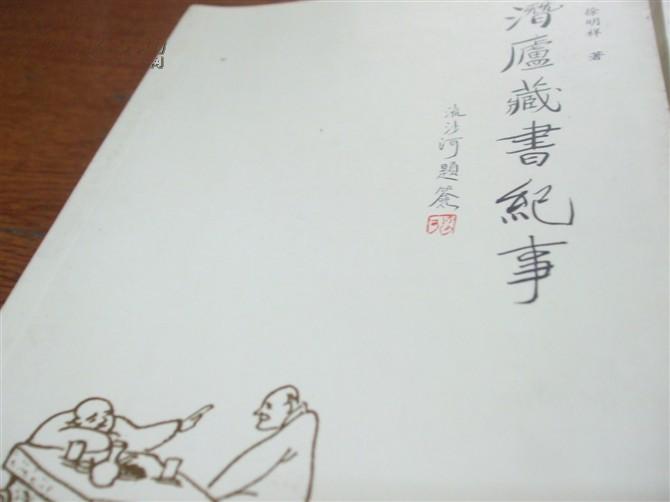 徐明祥 著
潛廬藏書紀事
流沙河題簽